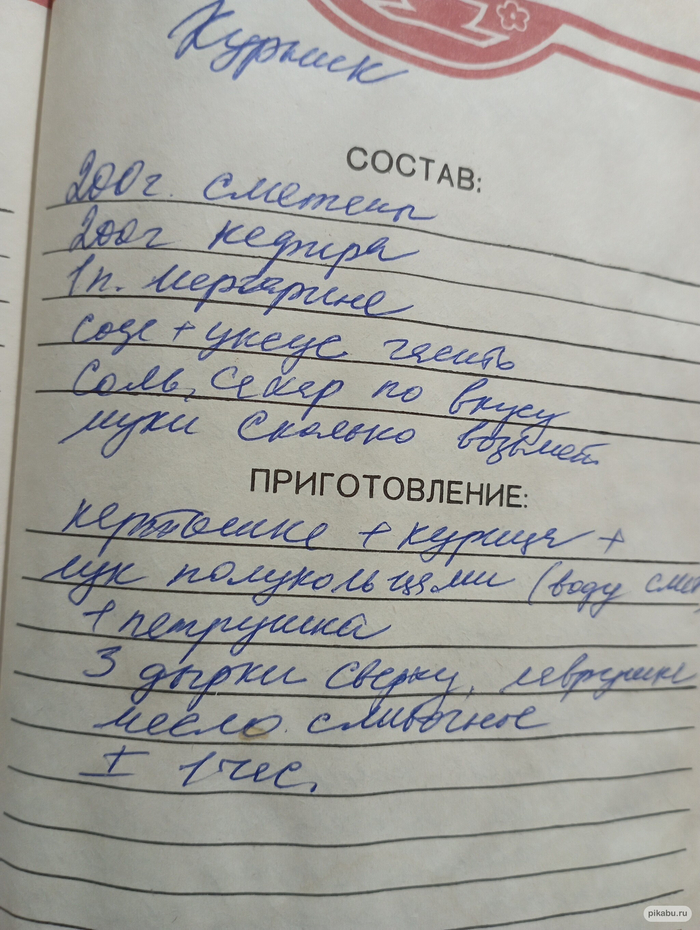 Курник
СОСТАВ:
200г. сметаны
200г кефира
1 п. маргарина
сода + уксус гасить
соль, сахар по вкусу
муки сколько возьмет
ПРИГОТОВЛЕНИЕ:
картошка + курица +
лук полукольцами (воду
+ петрушка
3 дырки сверху, лаврушка
масло сливочное
I 1 час.
pikabu.ru